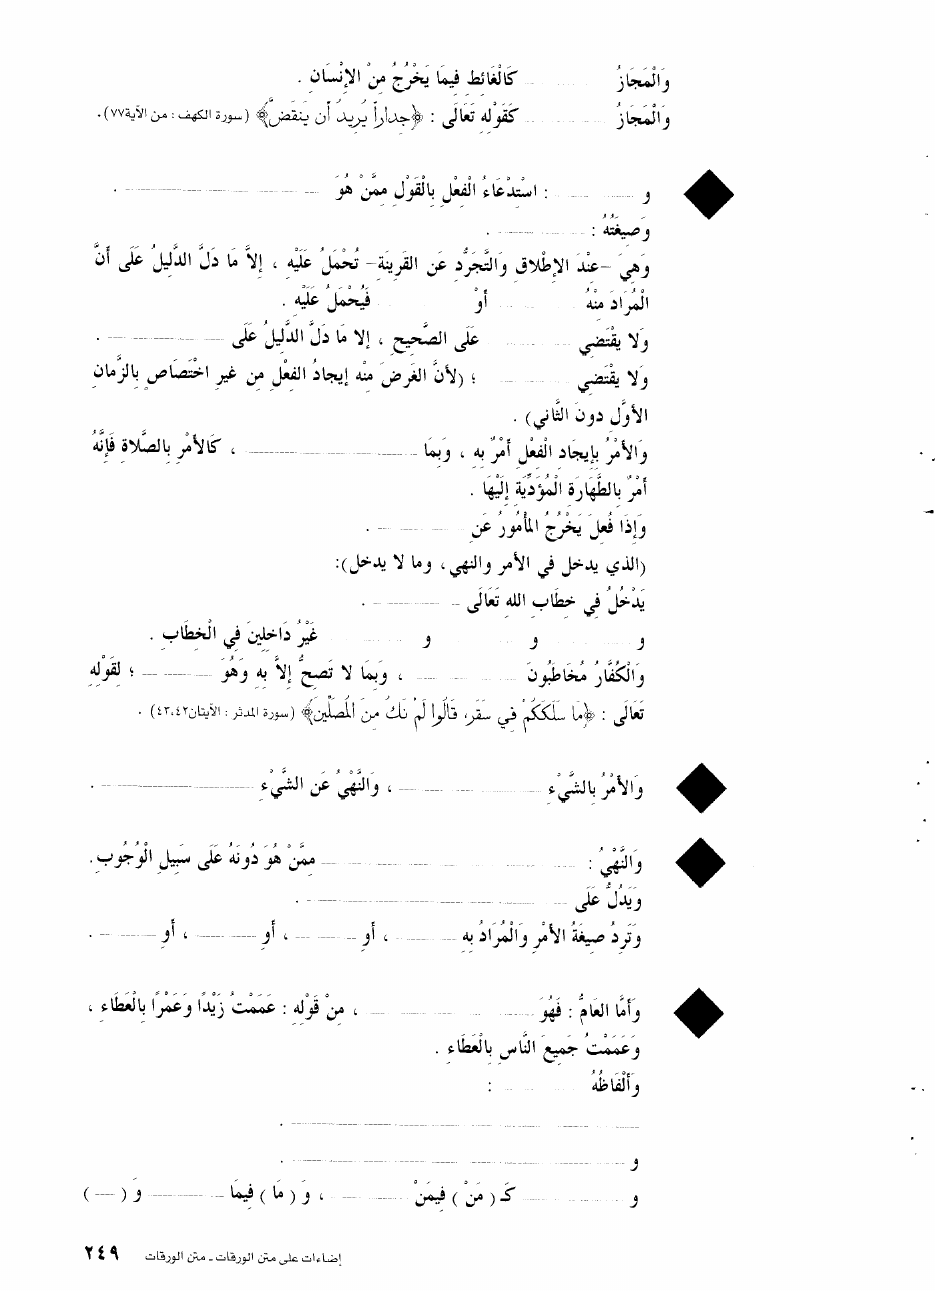 وَالْمَجَازُ ........ كَالْغَائِطِ فِيمَا يَخْرُجُ مِنْ الإِنْسَانِ .
وَالْمَجَازُ ........ كَقَوْلِهِ تَعَالَى : ﴿جِدَاراً يُرِيدُ أَن يَنقَضَّ﴾ (سورة الكهف : من الآية٧٧).
و ........ : اسْتِدْعَاءُ الْفِعْلِ بِالْقَوْلِ مِمَّنْ هُوَ ........ .
وَصِيغَتُهُ : ........ .
وَهِيَ -عِنْدَ الإِطْلاقِ وَالتَّجَرُّدِ عَنِ القَرِينَةِ- تُحْمَلُ عَلَيْهِ ، إِلاَّ مَا دَلَّ الدَّلِيلُ عَلَى أَنَّ
الْمُرَادَ مِنْهُ ........ أَوْ ........ فَيُحْمَلُ عَلَيْهِ .
وَلا يَقْتَضِي ........ عَلَى الصَّحِيحِ ، إِلا مَا دَلَّ الدَّلِيلُ عَلَى ........ .
وَلا يَقْتَضِي ........ ؛ (لأَنَّ الغَرَضَ مِنْهُ إِيجَادُ الفِعْلِ مِن غَيرِ اخْتِصَاصٍ بِالزَّمَانِ
الأَوَّلِ دُونَ الثَّانِي) .
وَالأَمْرُ بِإِيجَادِ الْفِعْلِ أَمْرٌ بِهِ ، وَبِمَا ........ ، كَالأَمْرِ بِالصَّلاةِ فَإِنَّهُ
أَمْرٌ بِالطَّهَارَةِ الْمُؤَدِّيَةِ إِلَيْهَا .
وَإِذَا فُعِلَ يَخْرُجُ المَأْمُورُ عَنِ ........ .
(الذي يدخل في الأمر والنهي، وما لا يدخل):
يَدْخُلُ فِي خِطَابِ اللهِ تَعَالَى ........ .
و ........ و ........ و ........ غَيْرُ دَاخِلِينَ فِي الْخِطَابِ .
وَالْكُفَّارُ مُخَاطَبُونَ ........ ، وَبِمَا لا تَصِحُّ إِلاَّ بِهِ وَهُوَ ........ ؛ لِقَوْلِهِ
تَعَالَى : ﴿مَا سَلَكَكُمْ فِي سَقَرَ، قَالُوا لَمْ نَكُ مِنَ الْمُصَلِّينَ﴾ (سورة المدثر : الآيتان٤٢،٤٣) .
وَالأَمْرُ بِالشَّيْءِ ........ ، وَالنَّهْيُ عَنِ الشَّيْءِ ........ .
وَالنَّهْيُ : ........ مِمَّنْ هُوَ دُونَهُ عَلَى سَبِيلِ الْوُجُوبِ.
وَيَدُلُّ عَلَى ........ .
وَتَرِدُ صِيغَةُ الأَمْرِ وَالْمُرَادُ بِهِ ........ ، أَو ........ ، أَو ........ ، أَو ........ .
وَأَمَّا العَامُّ : فَهُوَ ........ ، مِنْ قَوْلِهِ : عَمَمْتُ زَيْدًا وَعَمْرًا بِالْعَطَاءِ ،
وَعَمَمْتُ جَمِيعَ النَّاسِ بِالْعَطَاءِ .
وَأَلْفَاظُهُ ........ :
........ .
و ........ .
و ........ كَـ ( مَنْ ) فِيمَنْ ........ ، وَ ( مَا ) فِيمَا ........ وَ ( ـــ )
إضاءات على متن الورقات ـ متن الورقات ٢٤٩